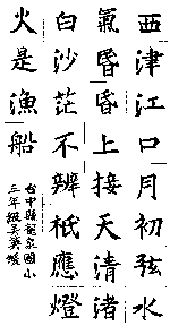 西津江口月初弦水
氣昏昏上接天清渚
白沙茫不辨祇應燈
火是漁船
台中縣龍泉國小
三年級吳